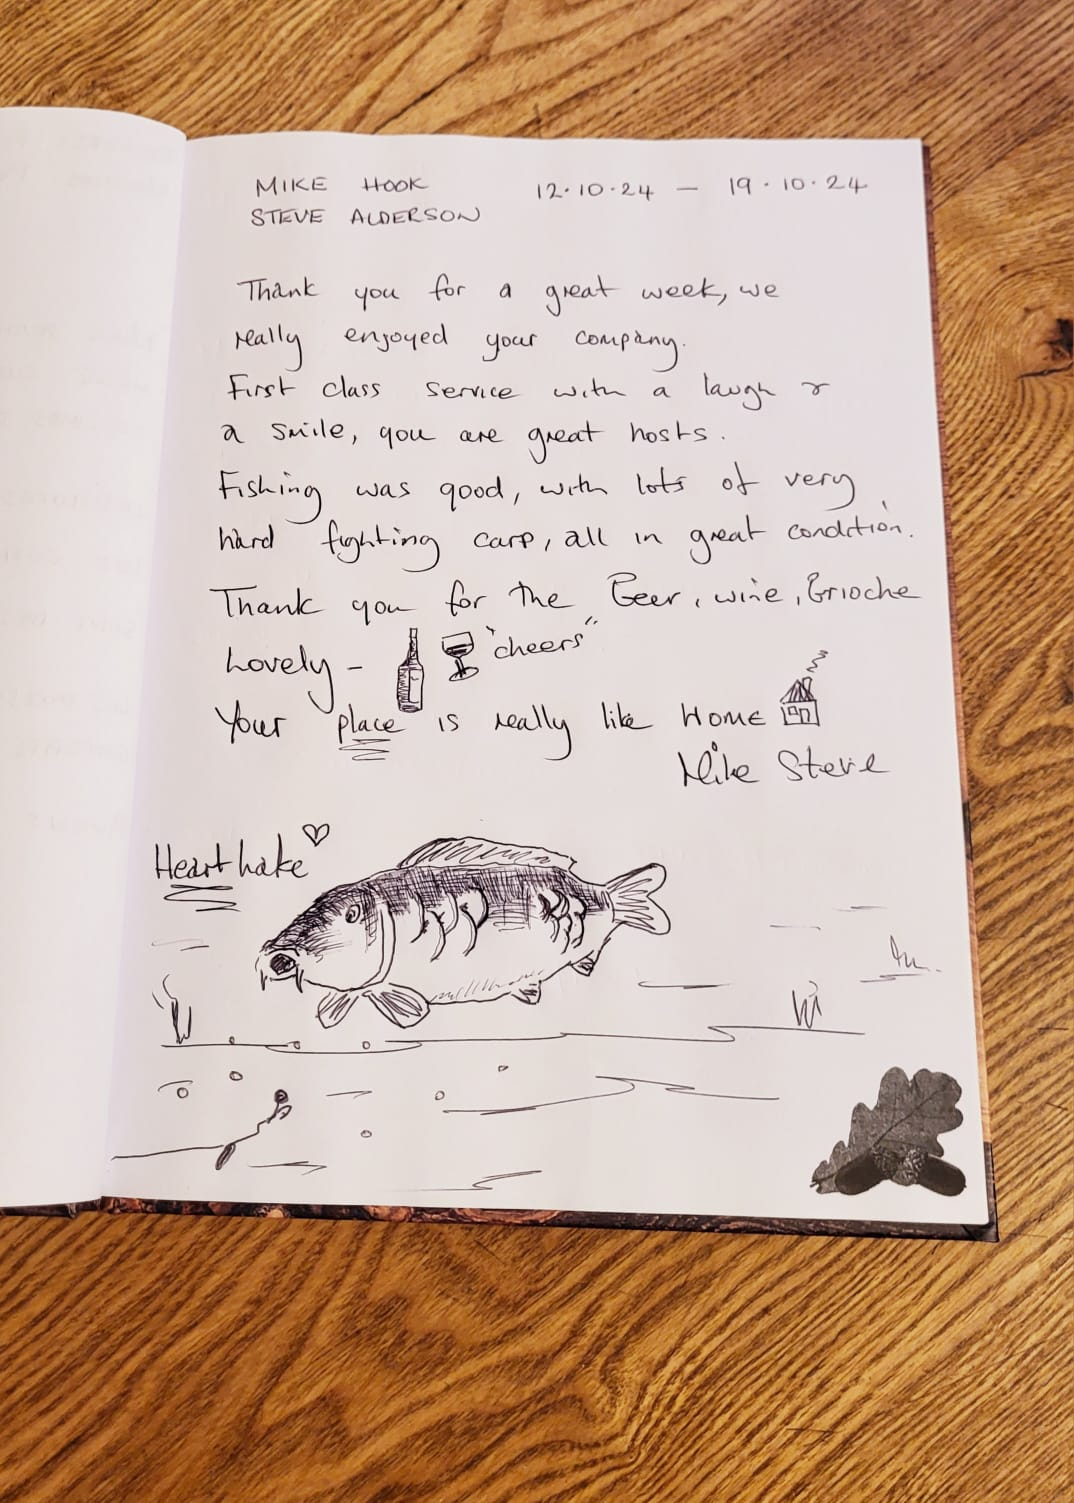 MIKE HOOK 12.10.24 — 19.10.24
STEVE ALDERSON
Thank you for a great week, we
really enjoyed your company.
First class service with a laugh &
a smile, you are great hosts.
Fishing was good, with lots of very
hard fighting carp, all in great condition.
Thank you for the Beer, wine, Brioche
Lovely - "cheers"
Your place is really like Home
Mike Steve
Heart lake